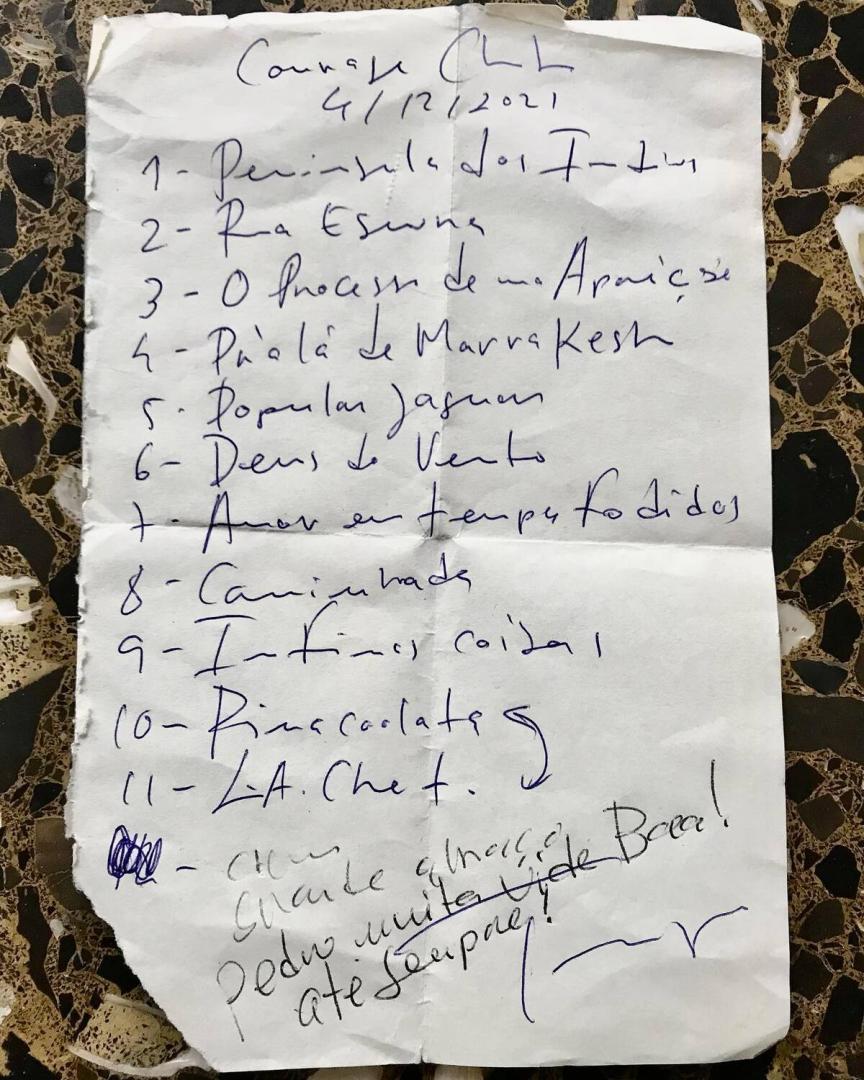 Courage Club
4/12/2021
1 - Peninsula dos
2 - Rua Escura
3 - O Processo de uma Aparição
4 - Pa'alá de Marrakesh
5 - Popular Jaguar
6 - Deus do Vento
7 - Amor em tempos fodidos
8 - Caminhada
9 - Ínfimas coisas
10 - Pinacoolata
11 - L.A. Chef.
- com
grande abraço
Pedro muita Vida Boa!
até sempre!